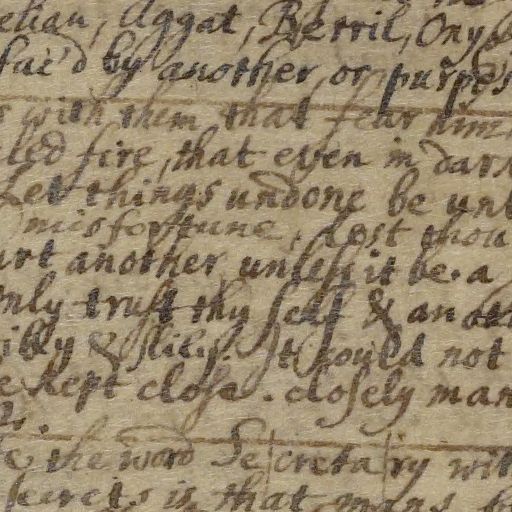 Aggat, Berril, Ony
by another, or purpos
with them that fear him
led fire, that even in dark
Let things undone be un
misfortune, dost thou
urt another unless it be. a
only trust thy self & anoth
ibly & slily. It could not
e kept close. closely man
the word Secretary wit
secrets is that mans